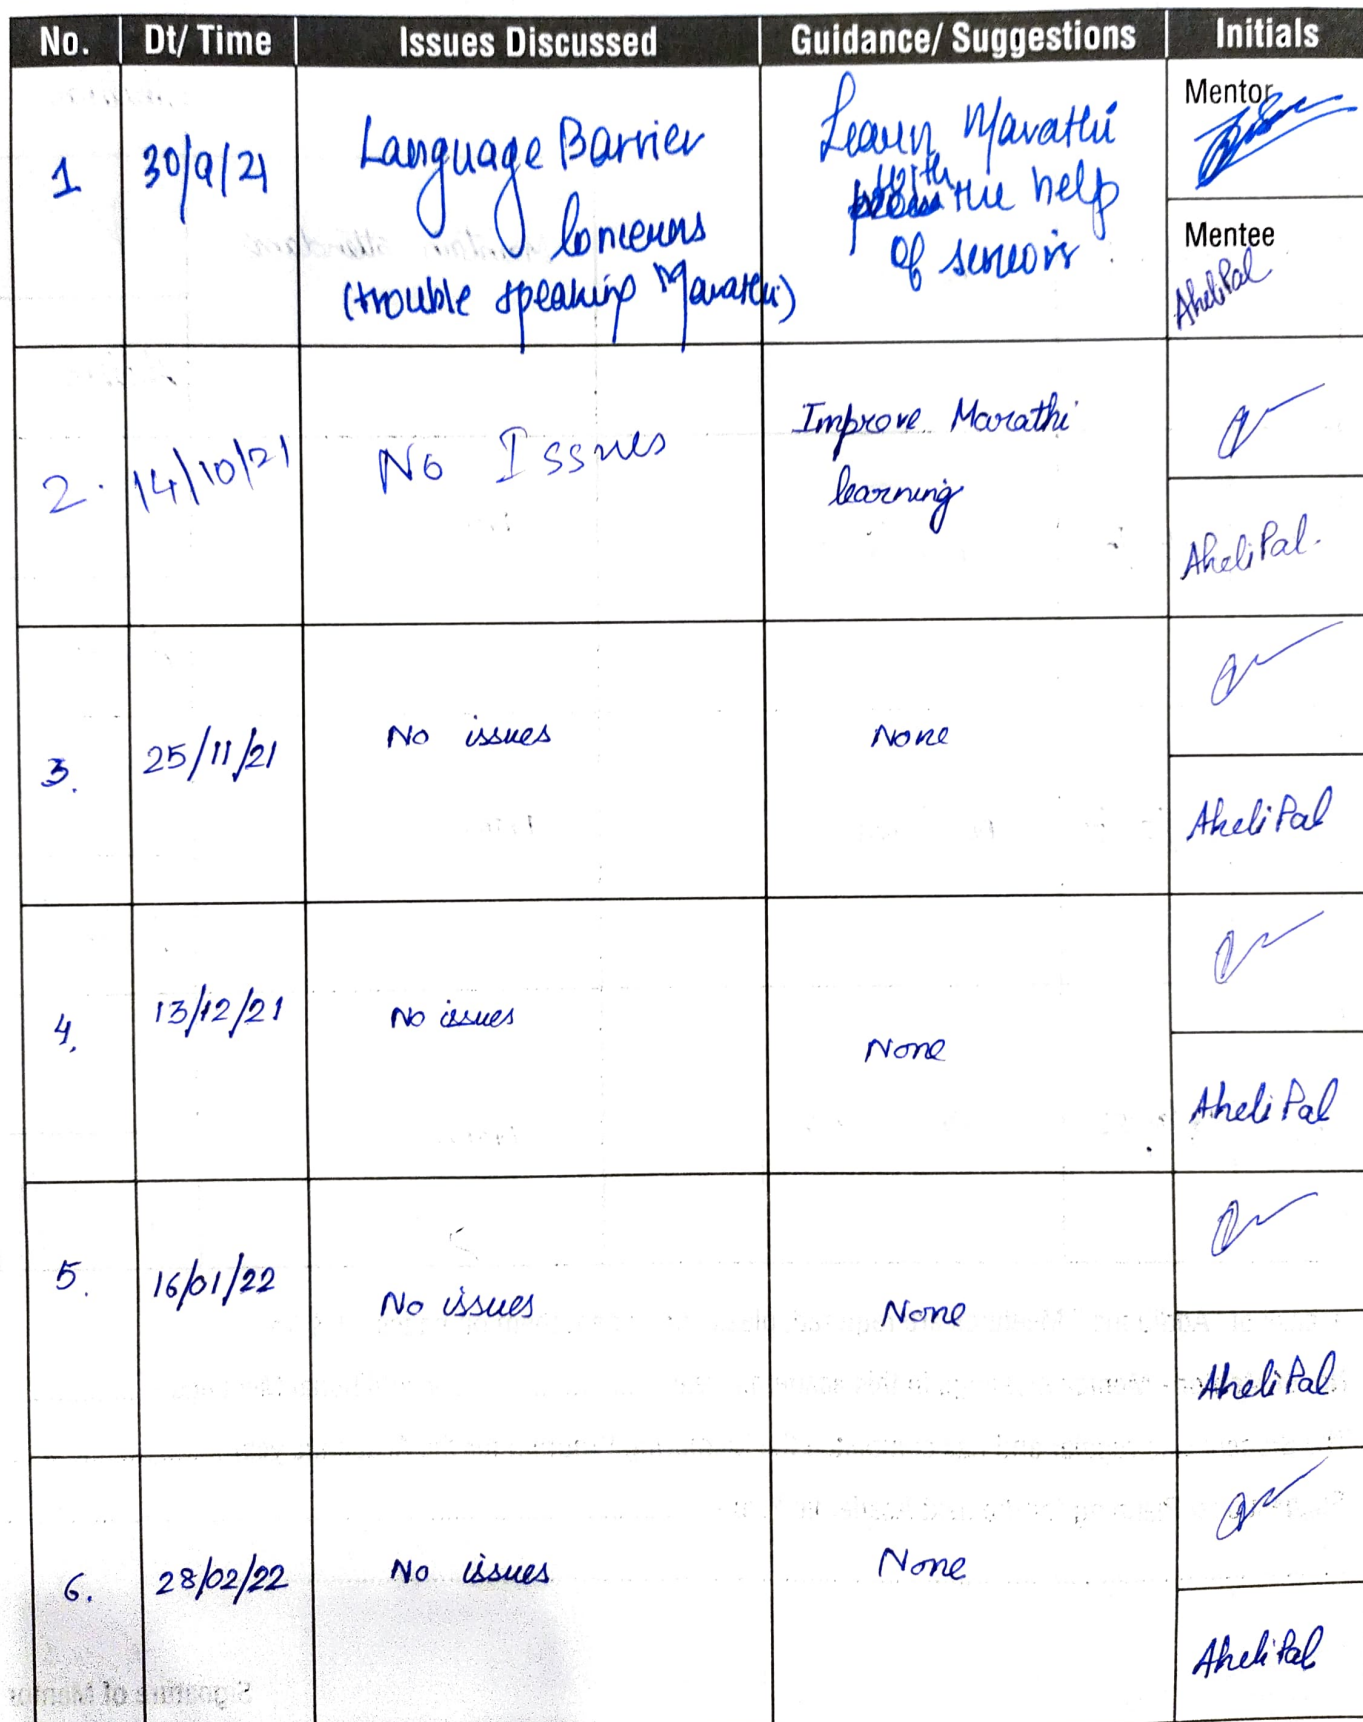 No. Dt/ Time Issues Discussed Guidance/ Suggestions Initials
1 30/9/21 Language Barrier
Concerns
(trouble speaking Marathi)
Learn Marathi
with the help
of seniors
Mentor
Mentee
Aheli Pal
2. 14/10/21 No Issues
Improve Marathi
learning
Aheli Pal.
3. 25/11/21 No issues None
Aheli Pal
4. 13/12/21 No issues None
Aheli Pal
5. 16/01/22 No issues None
Aheli Pal
6. 28/02/22 No issues None
Aheli Pal
Signature of Mentor